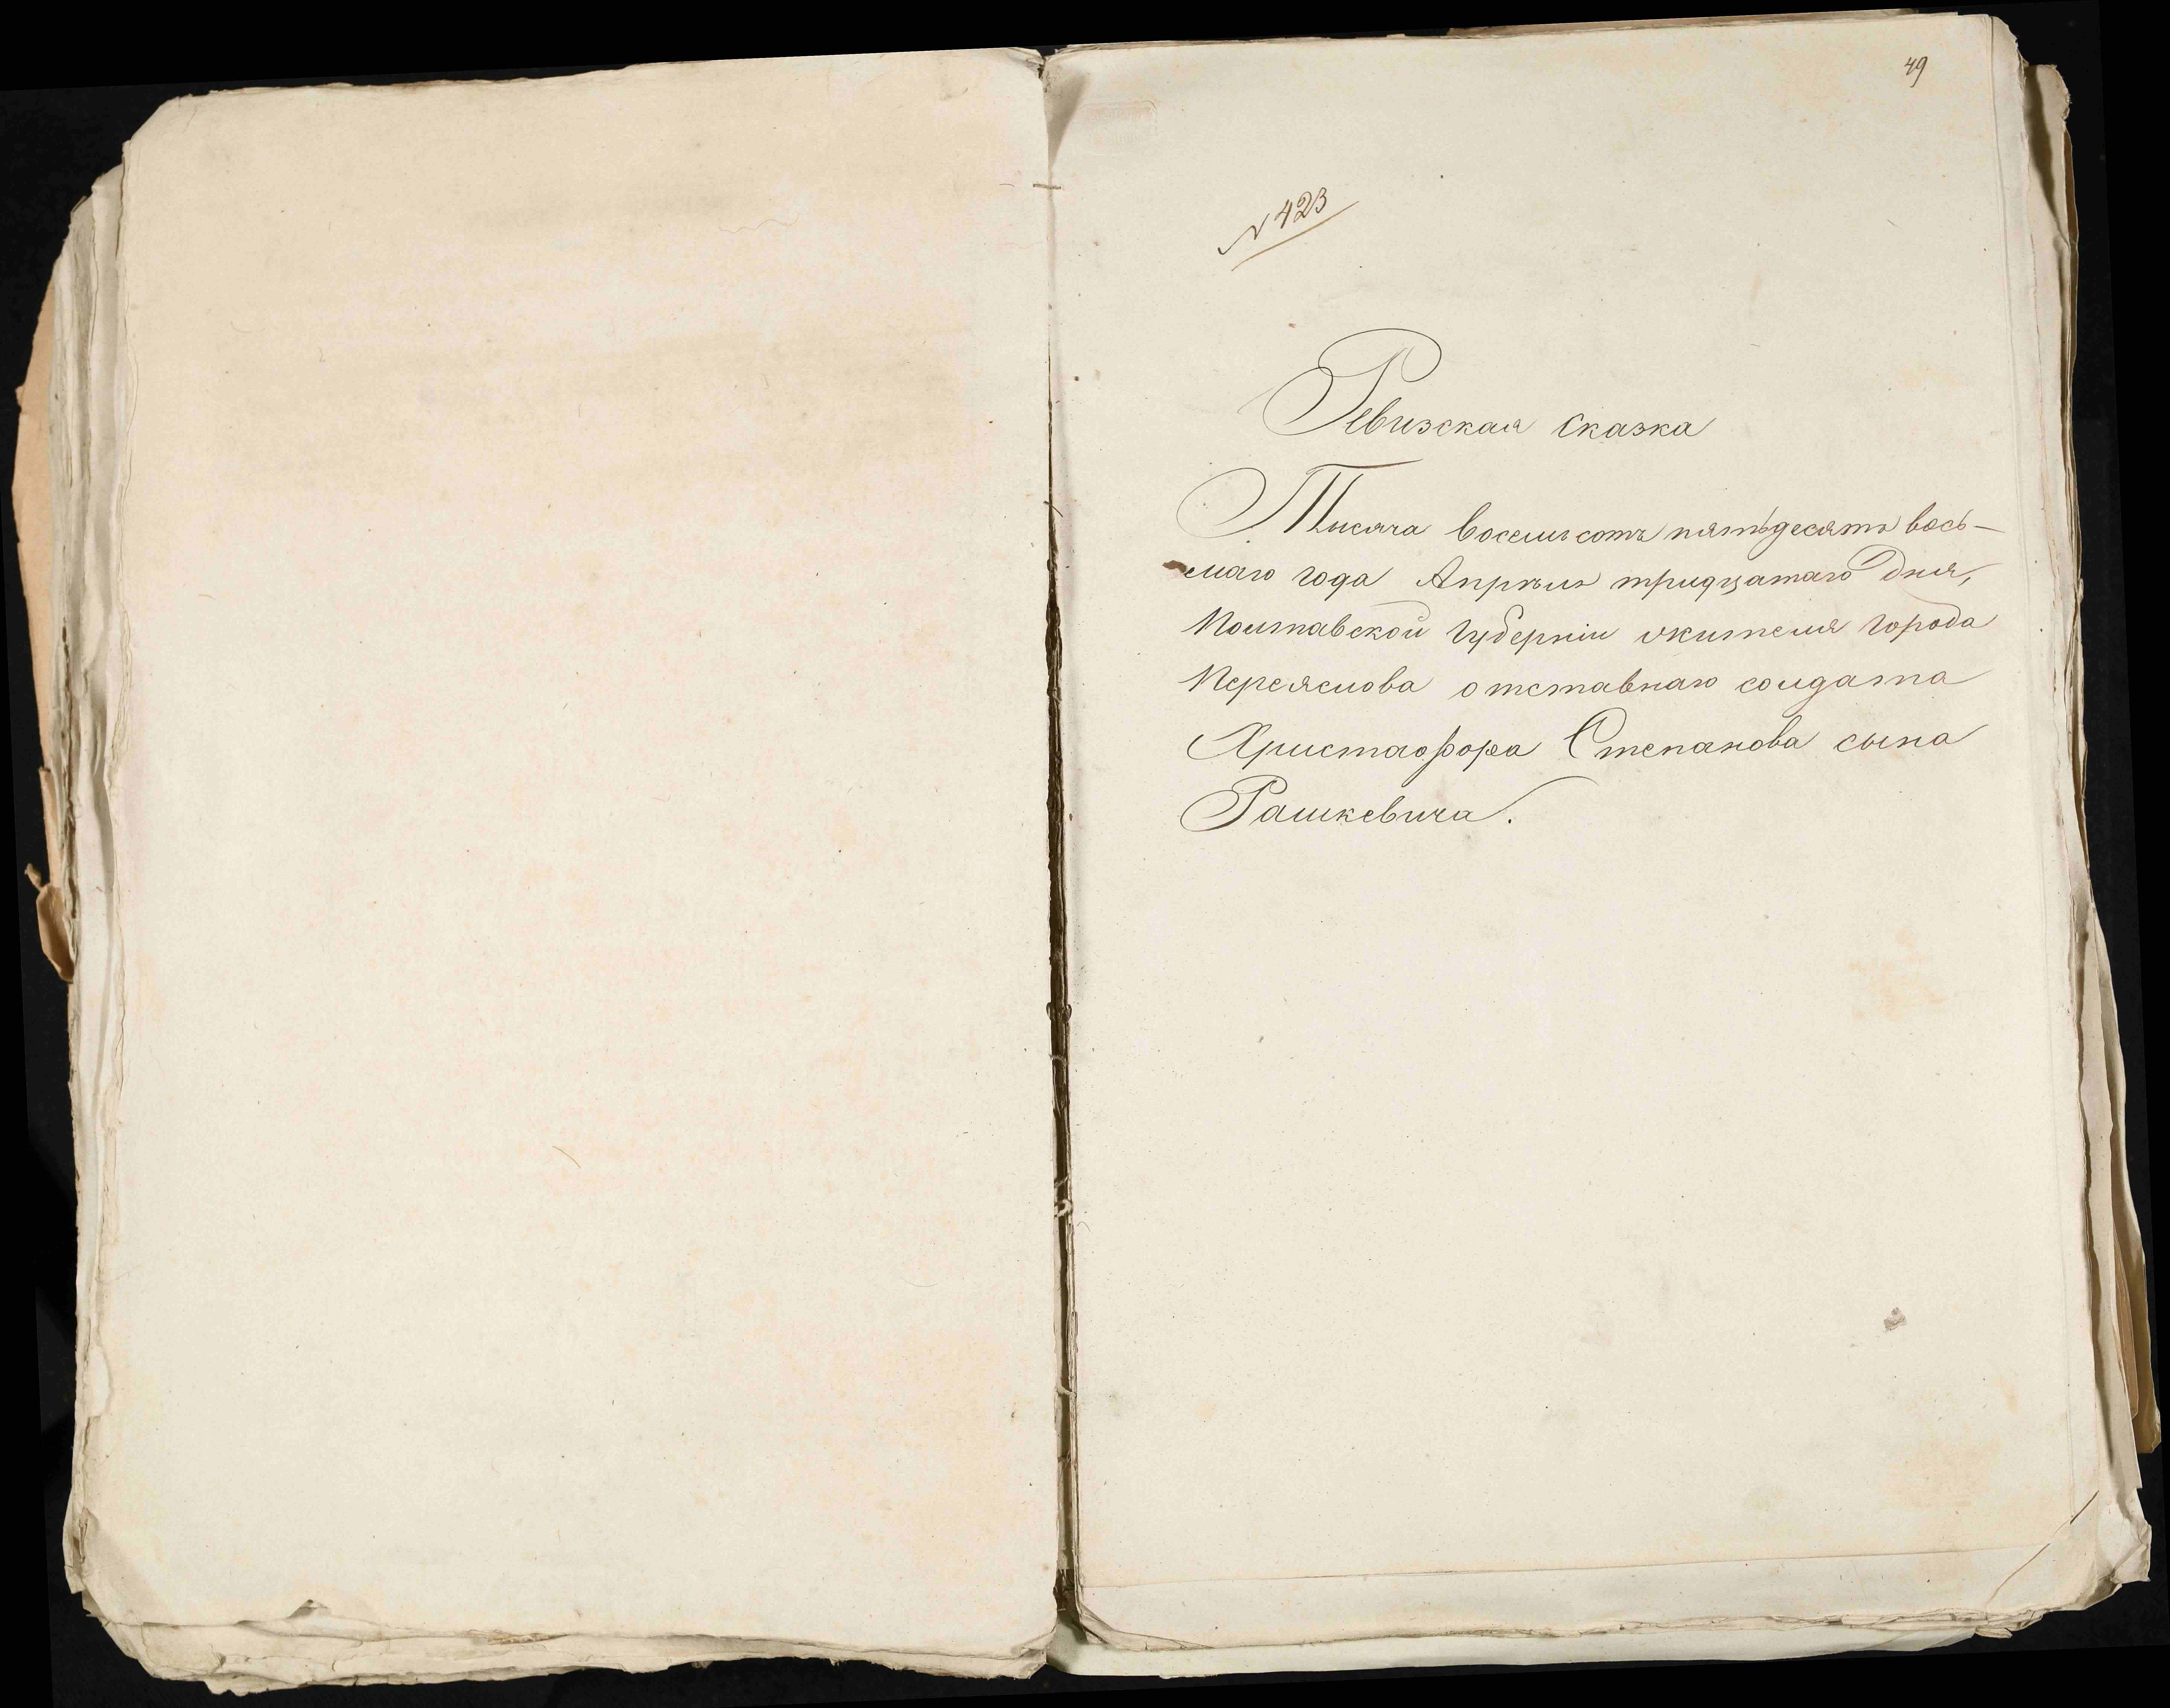 49
N 423
Ревизская сказка
Тысяча восемьсотъ пятьдесятъ вось-
маго года Апрѣля тридцатаго дня,
Полтавской Губерніи жителя города
Переяслова отставнаго солдата
Христофора Степанова сына
Рашкевича.